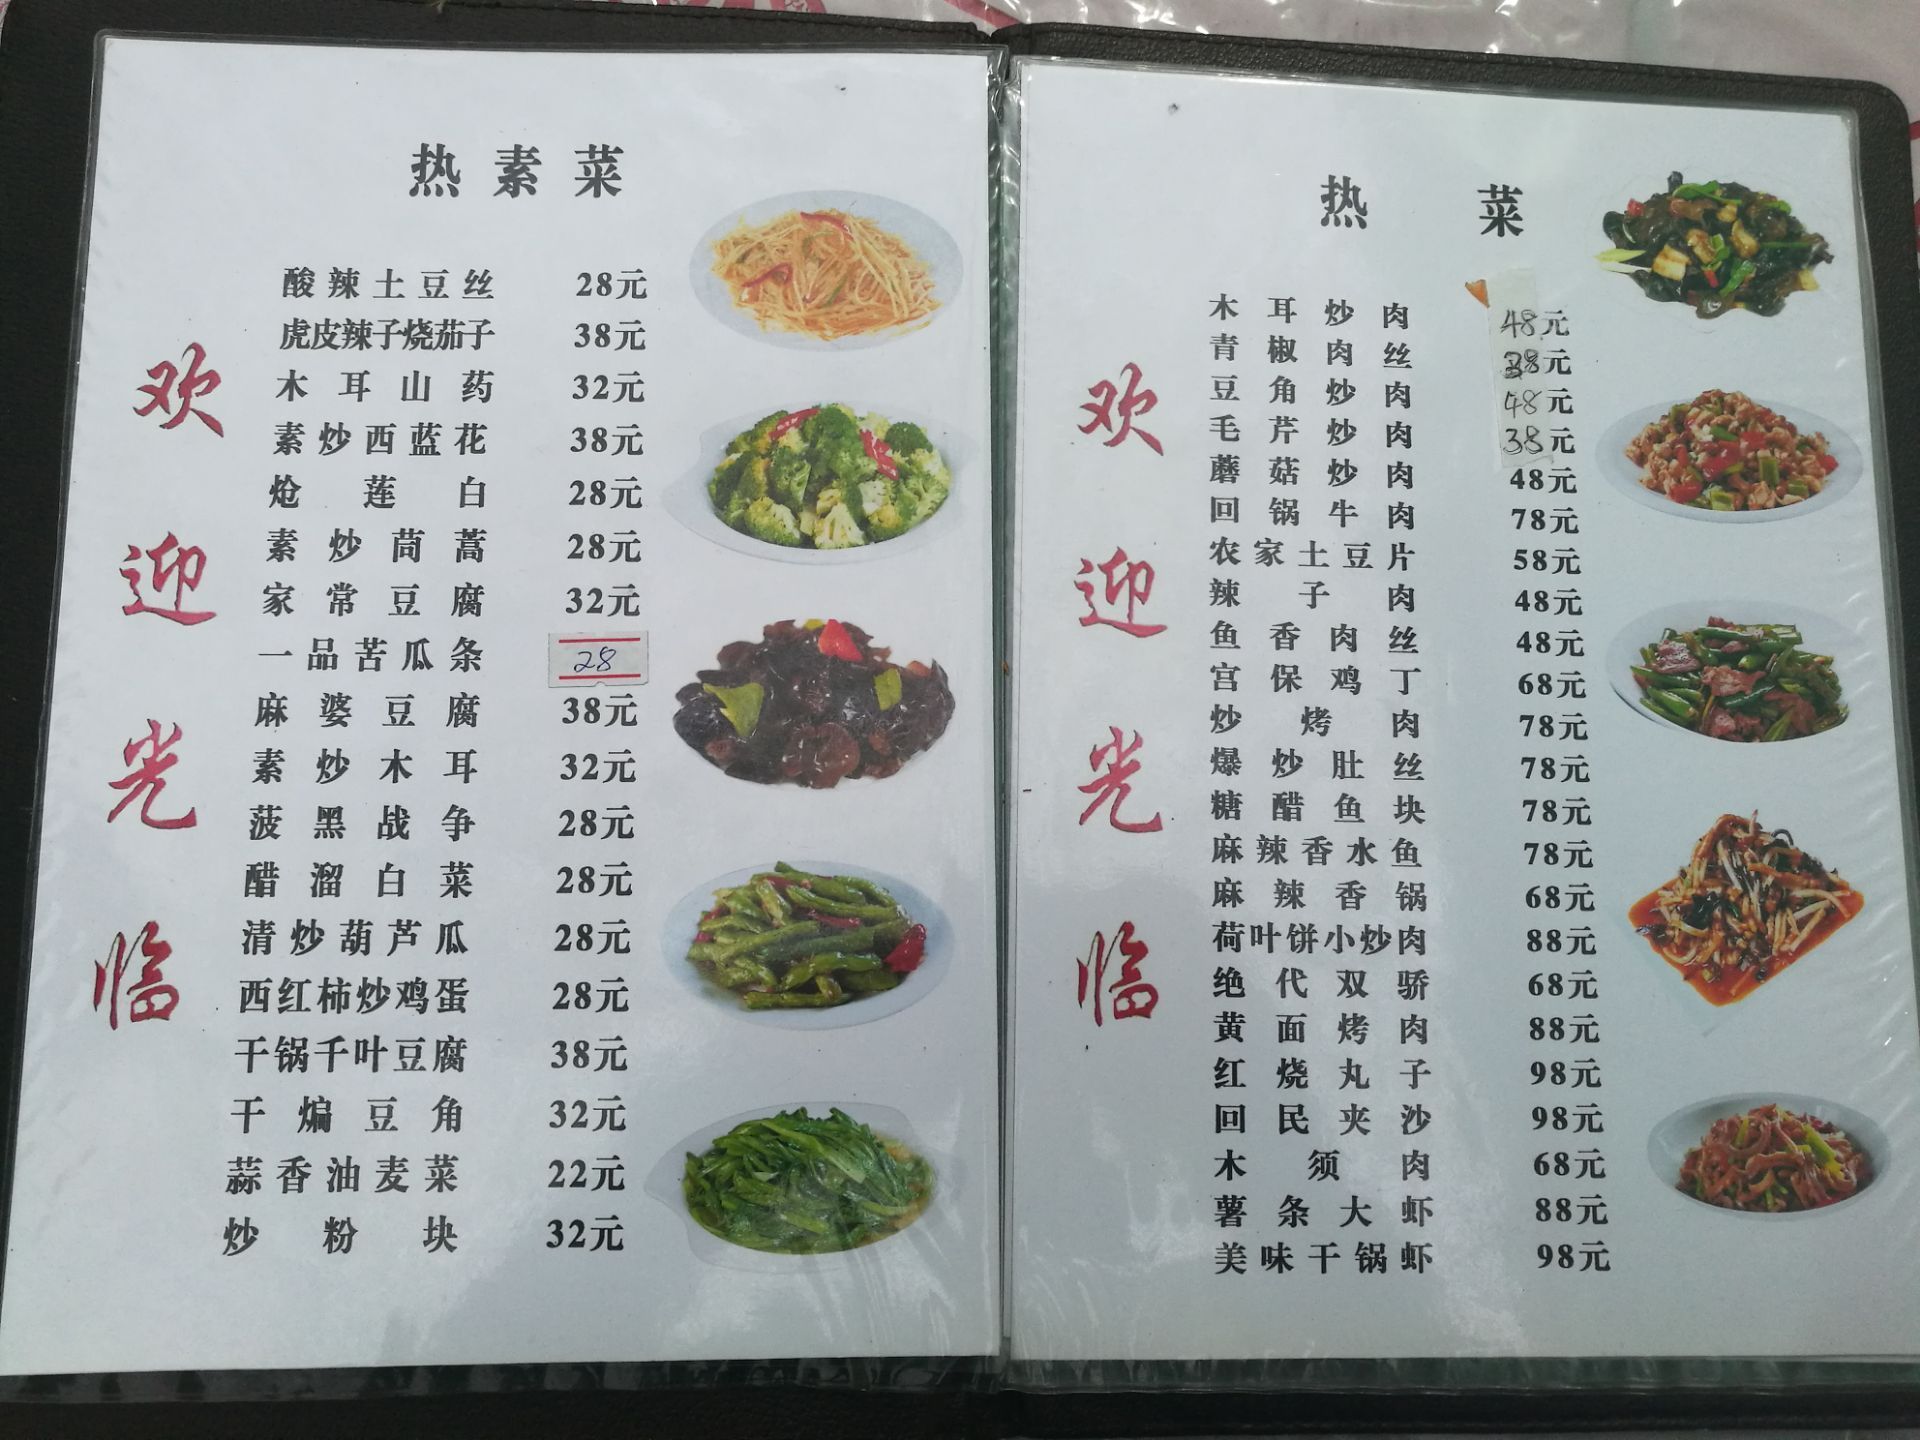 热素菜
酸辣土豆丝 28元
虎皮辣子烧茄子 38元
木耳山药 32元
素炒西蓝花 38元
炝莲白 28元
素炒茼蒿 28元
家常豆腐 32元
一品苦瓜条 28
麻婆豆腐 38元
素炒木耳 32元
菠黑战争 28元
醋溜白菜 28元
清炒葫芦瓜 28元
西红柿炒鸡蛋 28元
干锅千叶豆腐 38元
干煸豆角 32元
蒜香油麦菜 22元
炒粉块 32元
欢迎光临
热菜
木耳炒肉 48元
青椒肉丝 38元
豆角炒肉 48元
毛芹炒肉 38元
蘑菇炒肉 48元
回锅牛肉 78元
农家土豆片 58元
辣子肉 48元
鱼香肉丝 48元
宫保鸡丁 68元
炒烤肉 78元
爆炒肚丝 78元
糖醋鱼块 78元
麻辣香水鱼 78元
麻辣香锅 68元
荷叶饼小炒肉 88元
绝代双骄 68元
黄面烤肉 88元
红烧丸子 98元
回民夹沙 98元
木须肉 68元
薯条大虾 88元
美味干锅虾 98元
欢迎光临